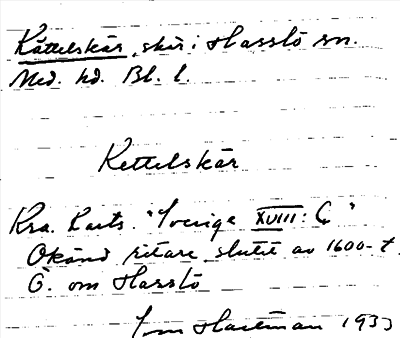 Kättelskär, skär i Hasslö sn.
Med. hd. Bl. l.
Kettelskär
Kra. Karts. "Sverige XVIII: C"
Okänd ritare, slutet av 1600-t.
Ö. om Hasslö
Hartman 1933